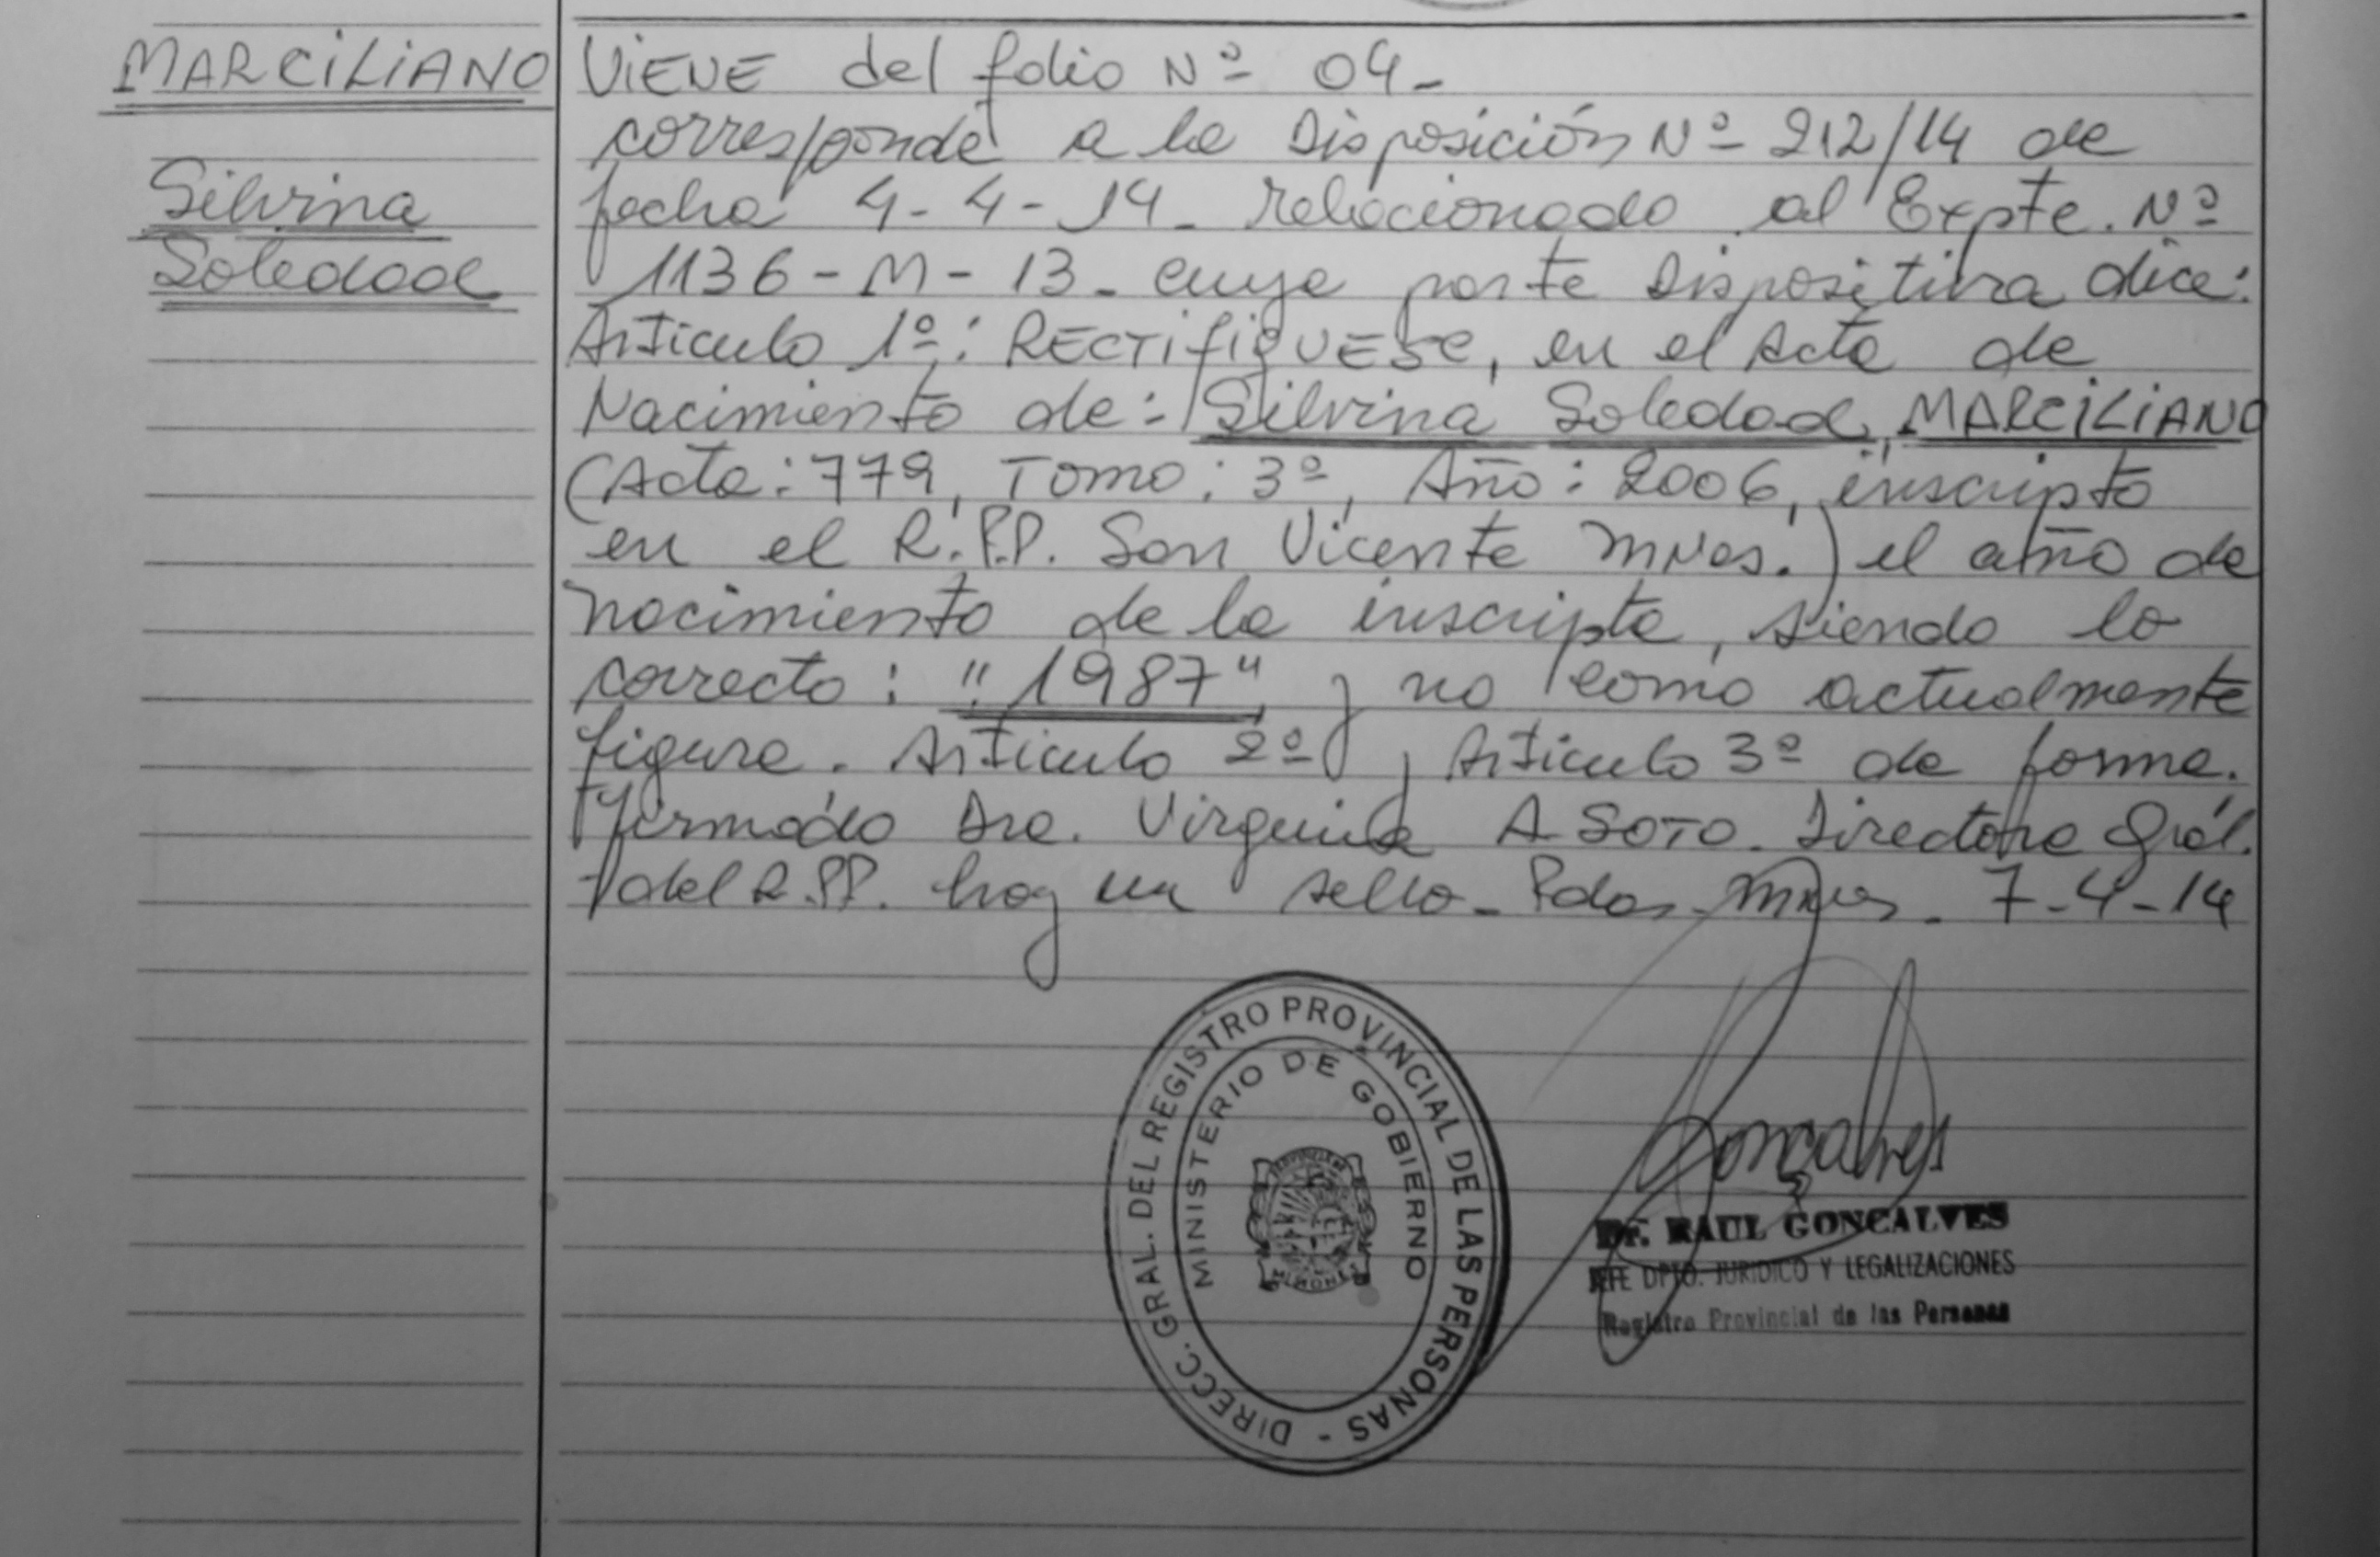 MARCILIANO
Silvina
Soledad
VIENE del folio Nº 04-
corresponde a la Disposición Nº 212/14 de
fecha 4-4-14- relacionado al Expte. Nº
1136-M-13- cuya parte Dispositiva dice:
Artículo 1º: RECTIFIQUESE, en el Acta de
Nacimiento de: Silvina Soledad, MARCILIANO
(Acta: 779, Tomo: 3º, Año: 2006, inscripto
en el R.P.P. San Vicente Mnes.) el año de
nacimiento de la inscripta, siendo lo
correcto: "1987" y no como actualmente
figura. Artículo 2º y Artículo 3º de forma.
Firmado Dra. Virginia A SOTO. Directora Gral.
del R.PP. hay un sello- Pdas-Mnes. 7-4-14
DIRECC. GRAL. DEL REGISTRO PROVINCIAL DE LAS PERSONAS -
MINISTERIO DE GOBIERNO
MISIONES
Gonçalves
Dr. RAUL GONCALVES
JEFE DPTO. JURIDICO Y LEGALIZACIONES
Registro Provincial de las Personas